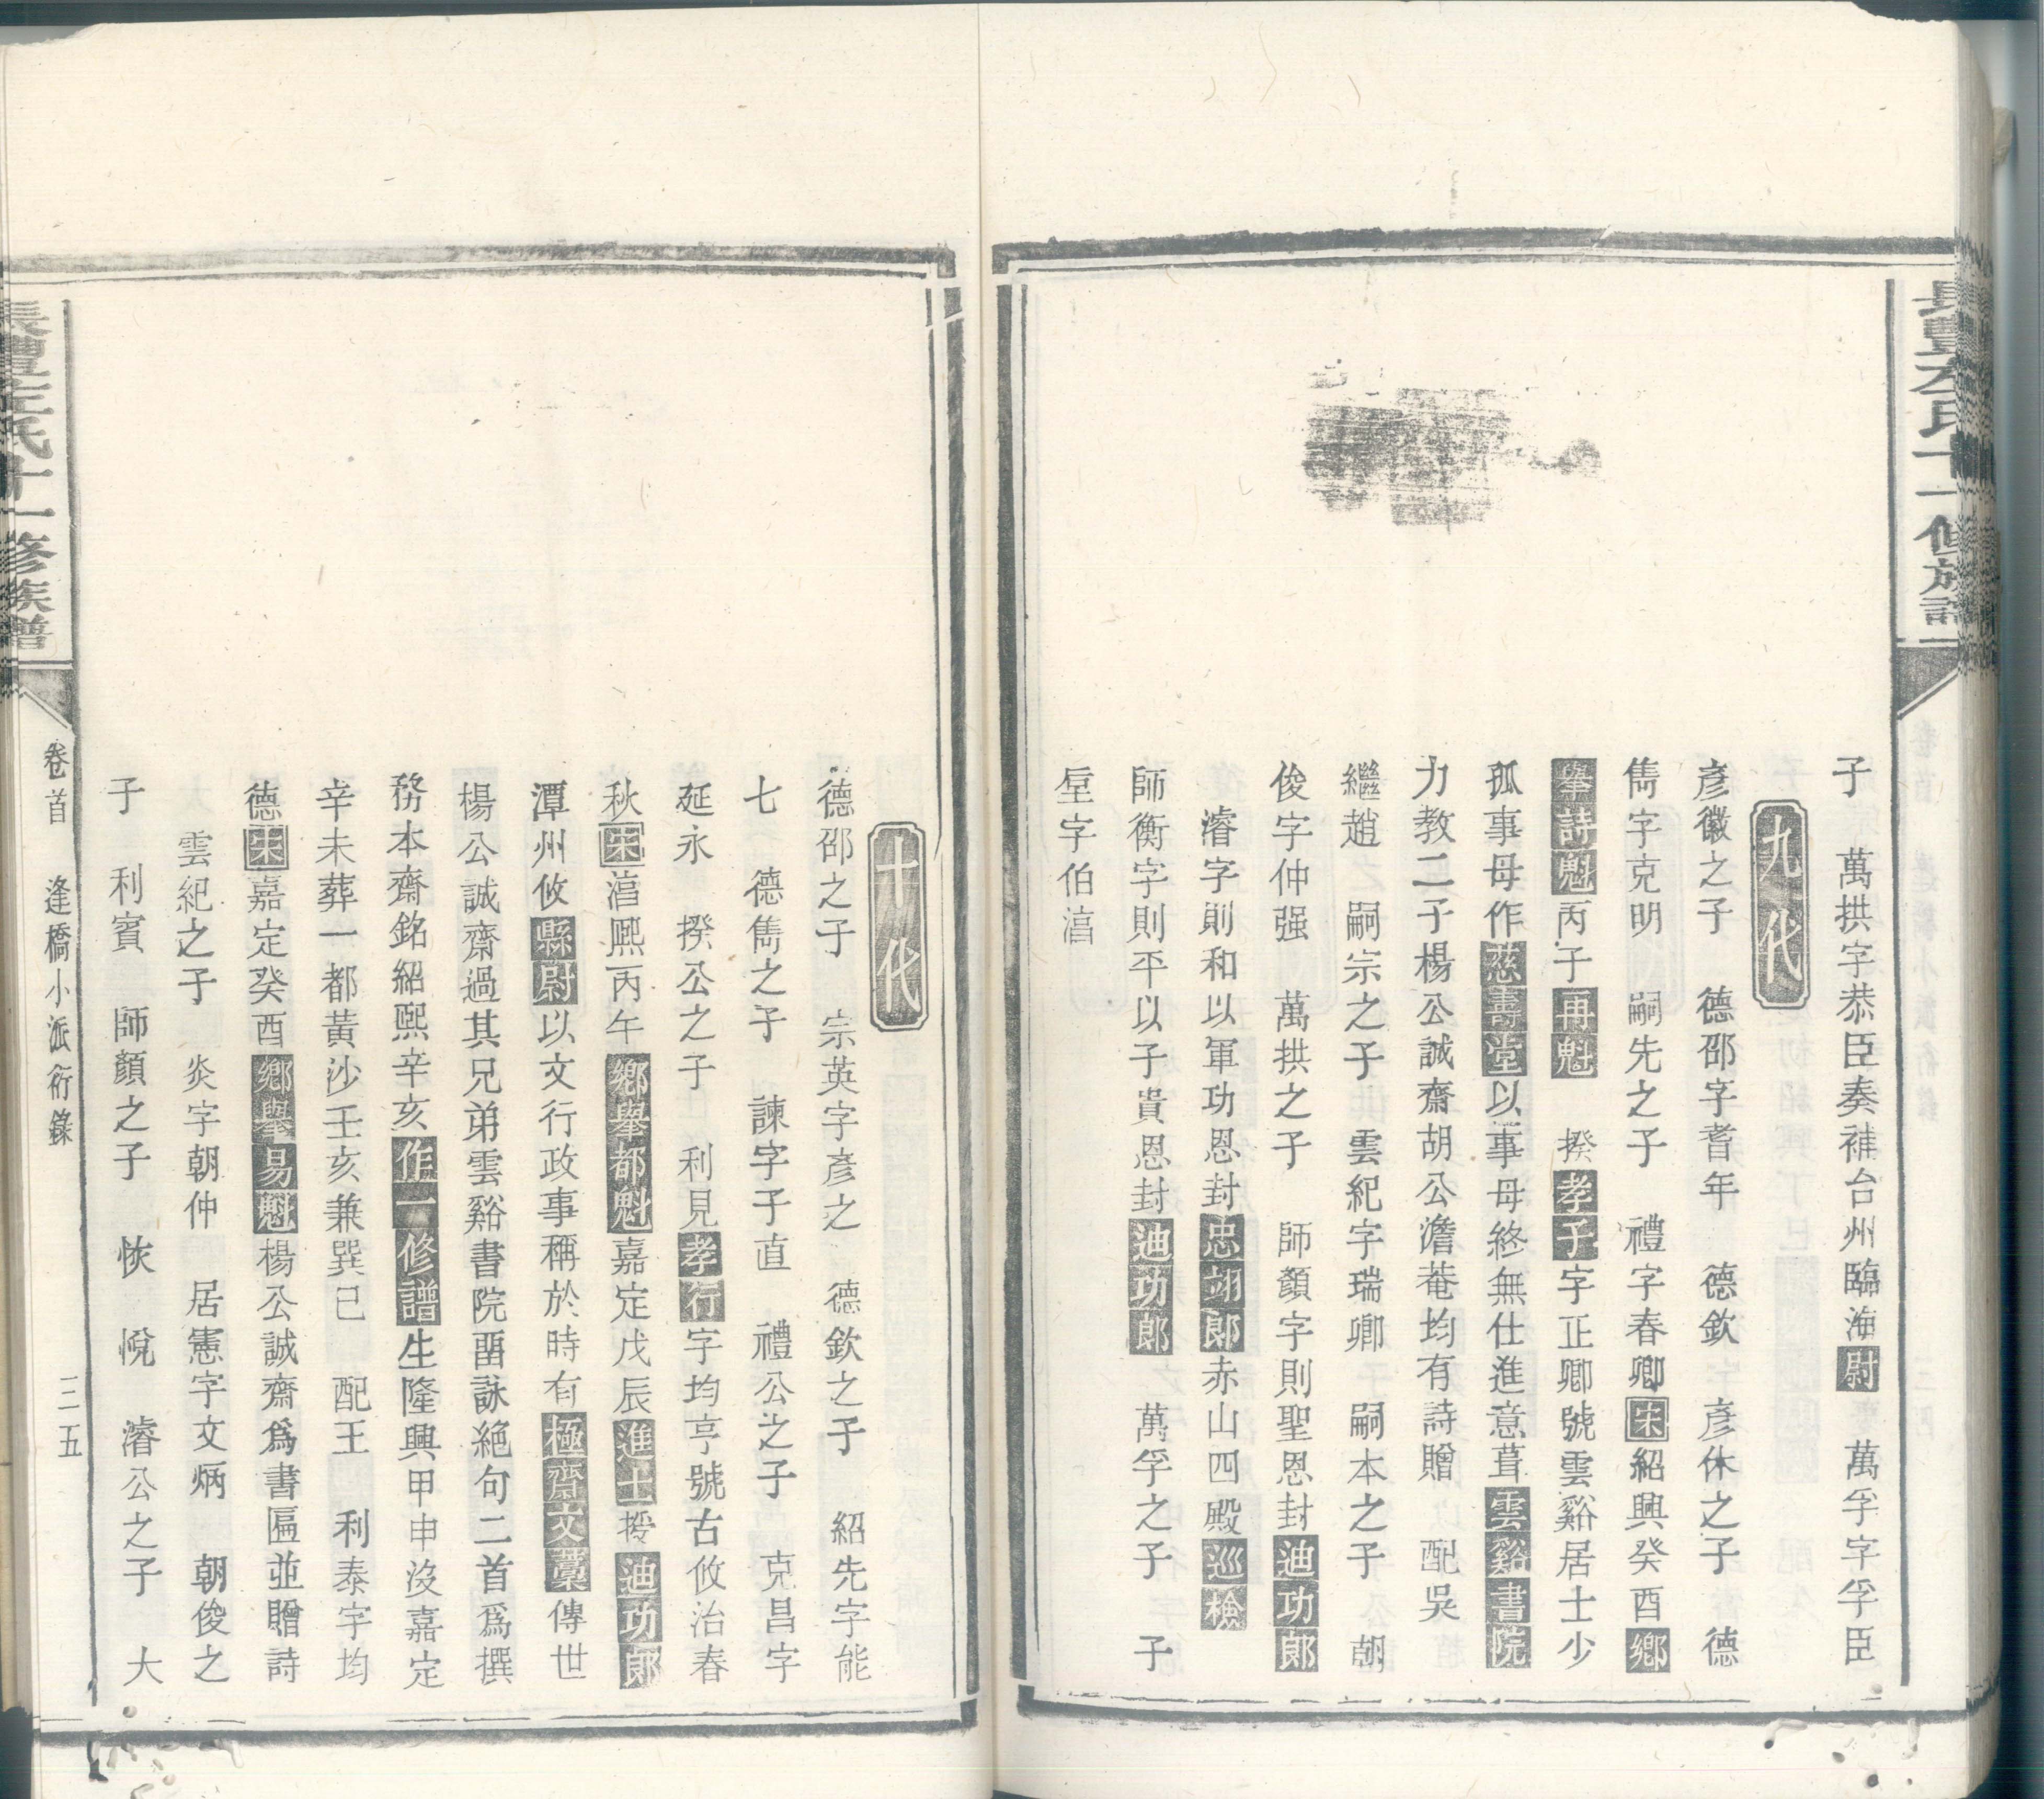 子　萬拱字恭臣奏補台州臨海尉　萬孚字孚臣
九代
彦徽之子　德邵字耆年　德欽　彦休之子　德
雋字克明　嗣先之子　禮字春卿宋紹興癸酉鄉
舉詩魁丙子再魁　揆孝子字正卿號雲谿居士少
孤事母作慈壽堂以事母終無仕進意葺雲谿書院
力教二子楊公誠齋胡公澹菴均有詩贈　配吳
繼趙　嗣宗之子　雲紀字瑞卿　嗣本之子　朝
俊字仲强　萬拱之子　師顏字則聖恩封迪功郎
濬字則和以軍功恩封忠翊郎赤山四殿巡檢
師衡字則平以子貴恩封迪功郎　萬孚之子　子
垕字伯湻
十代
德邵之子　宗英字彦之　德欽之子　紹先字能
七　德雋之子　諫字子直　禮公之子　克昌字
延永　揆公之子　利見孝行字均亨號古攸治春
秋宋湻熙丙午鄉舉都魁嘉定戊辰進士授迪功郎
潭州攸縣尉以文行政事稱於時有極齋文藁傳世
楊公誠齋過其兄弟雲谿書院畱詠絕句二首爲撰
務本齋銘紹熙辛亥作一修譜生隆興甲申沒嘉定
辛未葬一都黃沙壬亥兼巽巳　配王　利泰字均
德宋嘉定癸酉鄉舉易魁楊公誠齋爲書匾並贈詩
雲紀之子　炎字朝仲　居憲字文炳　朝俊之
子　利賓　師顏之子　恢　悅　濬公之子　大
長豐左氏十一修族譜
卷首　逢橋小派衍錄　三五